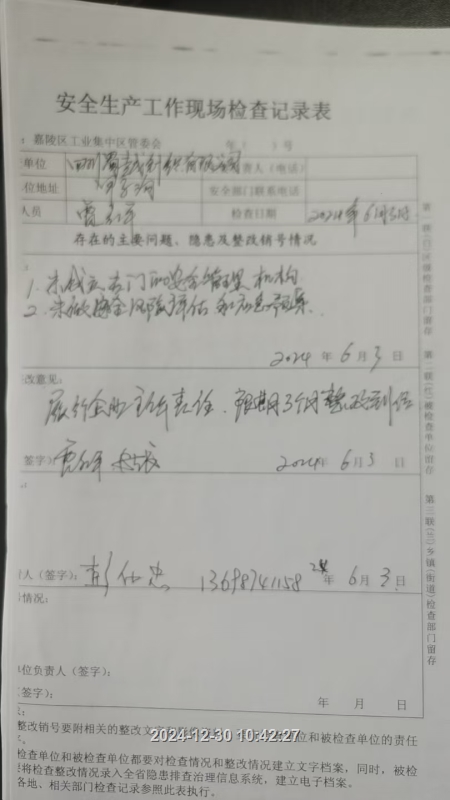 安全生产工作现场检查记录表
：嘉陵区工业集中区管委会 年（ ）号
单位 责人（电话）
位地址 安全部门联系电话
人员 检查日期 2024年6月3日
存在的主要问题、隐患及整改销号情况
1. 未成立专门的安全管理机构
2. 未做安全风险评估和应急预案.
2024年6月3日
改意见:
履行企业主体责任、限期3个月整改到位
签字）: 2024年6月3日
人（签字）: 13698741158 24年6月3日
情况:
位负责人（签字）:
签字）: 年 月 日
2024-12-30 10:42:27
整改销号要附相关的整改文字 位和被检查单位的责任
检查单位和被检查单位都要对检查情况和整改情况建立文字档案，同时，被检
将检查整改情况录入全省隐患排查治理信息系统，建立电子档案。
各地、相关部门检查记录参照此表执行。
第一联(白)区级检查部门留存
第二联(红)被检查单位留存
第三联(三)乡镇(街道)检查部门留存